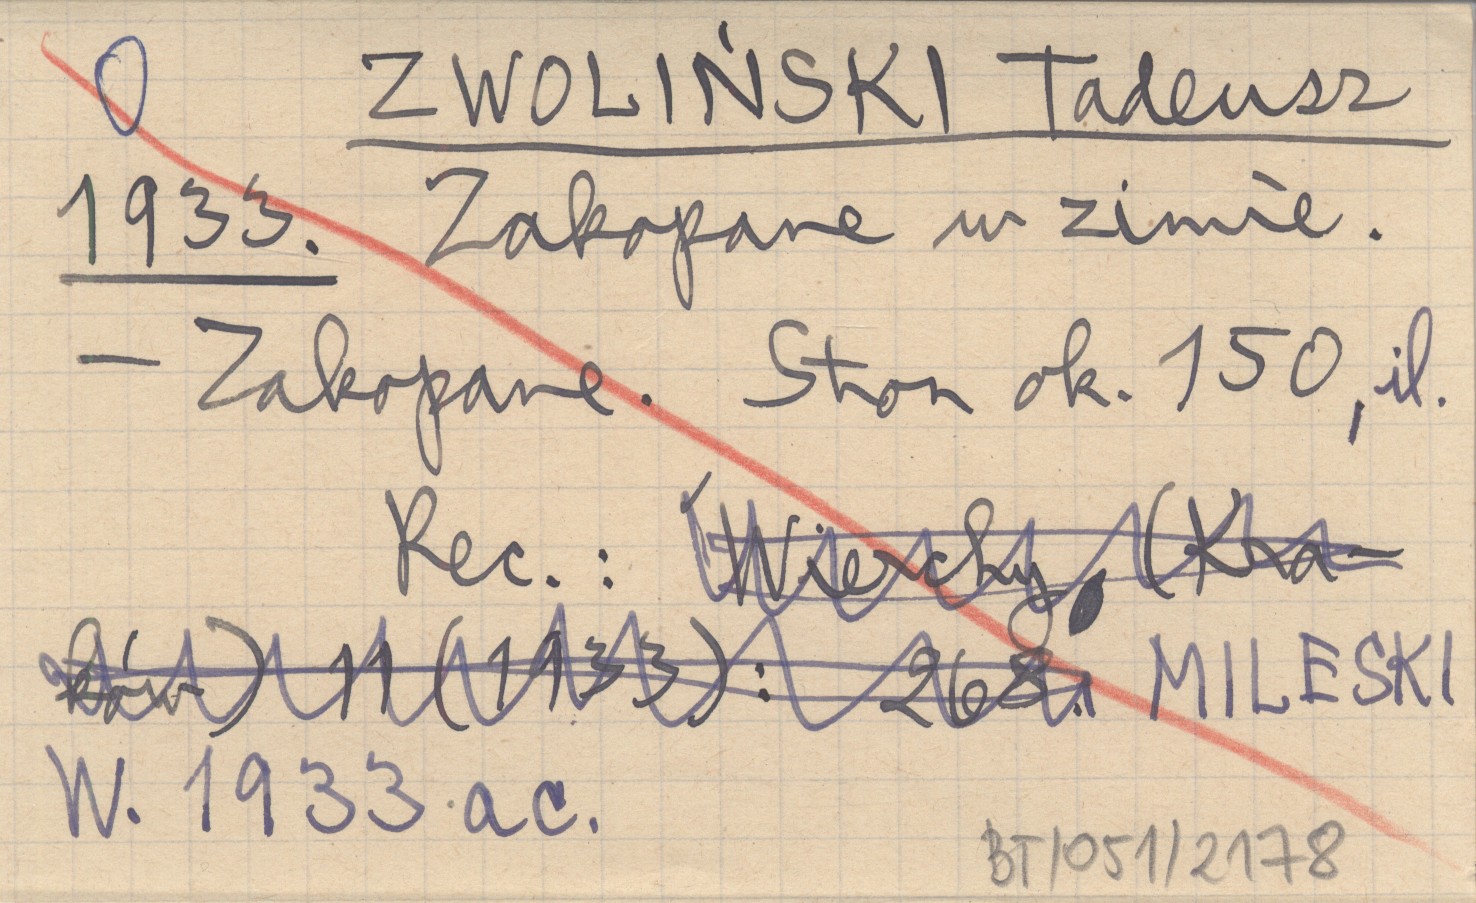 0 ZWOLIŃSKI Tadeusz
1933. Zakopane w zimie.
— Zakopane. Stron ok. 150, il.
Rec.: Wierchy, (Kra-
ków) 11 (1933): 268. MILESKI
W. 1933 ac.
BT/051/2178